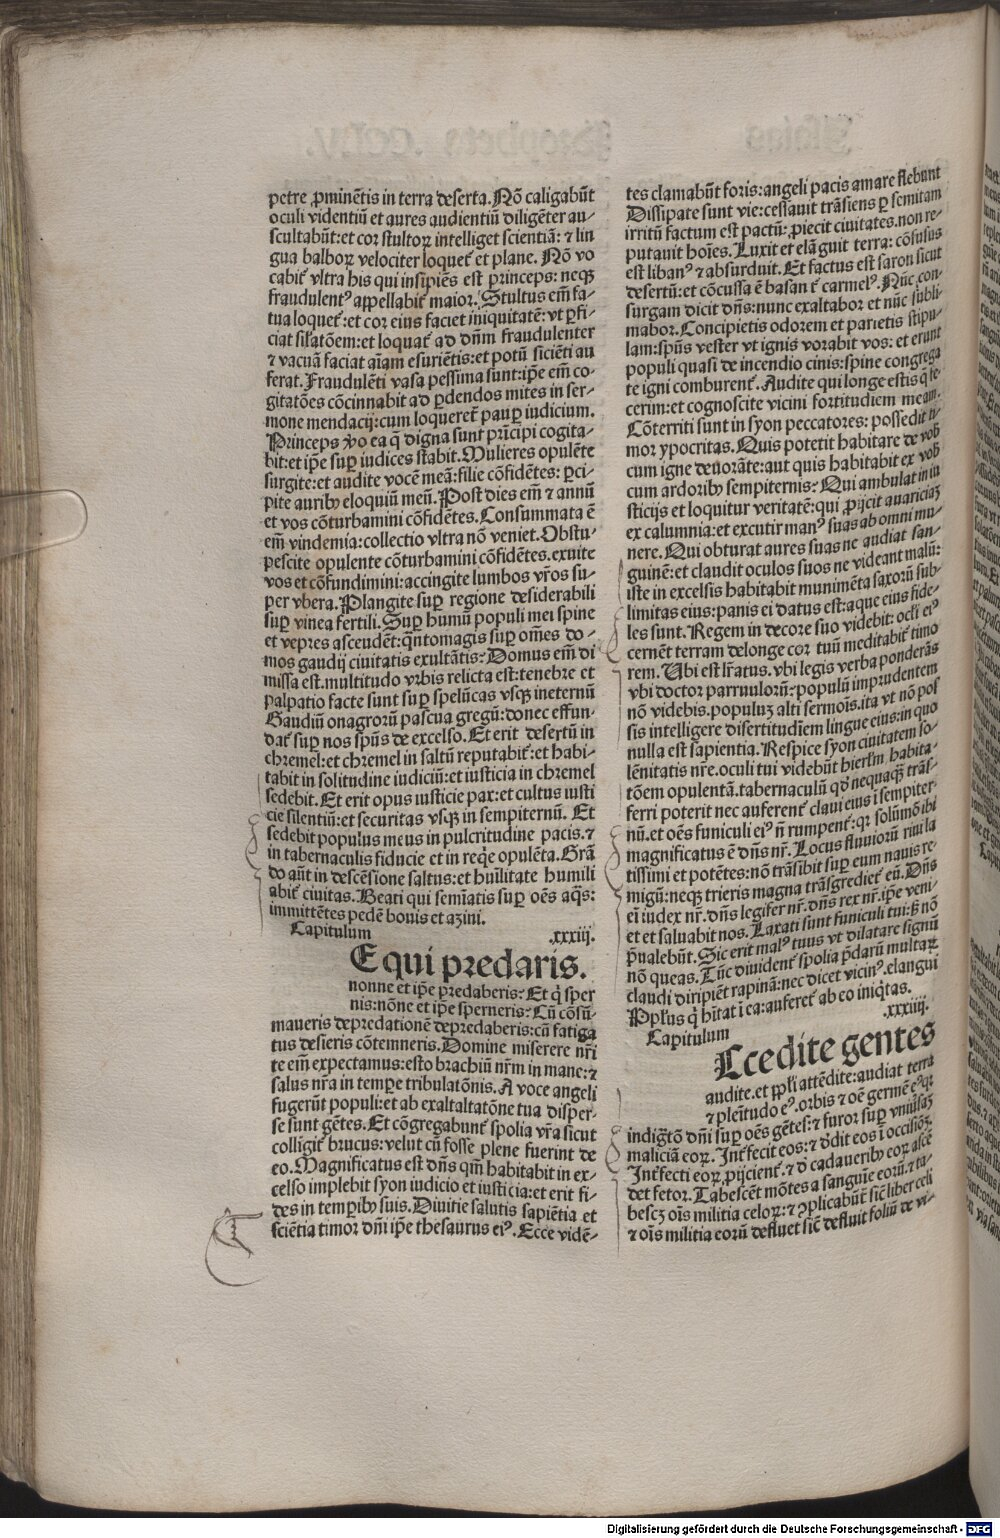 petre ꝓminētis in terra deserta. Nō caligabūt
oculi videntiū et aures audientiū diligēter au⸗
scultabūt: et cor stultoꝝ intelliget scientiā: ⁊ lin
gua balboꝝ velociter loquet᷑ et plane. Nō vo
cabit᷑ vltra his qui insipiēs est princeps: neqꝫ
fraudulentꝰ appellabit᷑ maior. Stultus em̄ fa⸗
tua loquet᷑: et cor eius faciet iniquitatē: vt ꝑfi⸗
ciat sil̓atōem: et loquat᷑ ad dn̄m fraudulenter
⁊ vacuā faciat aīam esuriētis: et potū sicieti au
ferat. Fraudulēti vasa pessima sunt: ip̄e em̄ co⸗
gitatōes cōcinnabit ad ꝑdendos mites in ser⸗
mone mendacij: cum loqueret᷑ pauꝑ iudicium.
Princeps ꝟo ea q̄ digna sunt prīcipi cogita⸗
bit: et ip̄e suꝑ iudices stabit. Mulieres opulēte
surgite: et audite vocē meā: filie cōfidētes: ꝑci⸗
pite auribꝫ eloquiū meū. Post dies em̄ ⁊ annū
et vos cōturbamini cōfidētes. Consummata ē
em̄ vindemia: collectio vltra nō veniet. Obstu⸗
pescite opulente cōturbamini cōfidētes. exuite
vos et cōfundimini: accingite lumbos vr̄os su⸗
per vbera. Plangite suꝑ regione desiderabili
suꝑ vinea fertili. Suꝑ humū populi mei spine
et vepres ascendēt: q̄ntomagis suꝑ om̄es do⸗
mos gaudij ciuitatis exultātis? Domus em̄ di
missa est. multitudo vrbis relicta est: tenebre et
palpatio facte sunt suꝑ spelūcas vsqꝫ ineternū
Gaudiū onagrorū pascua gregū: donec effun⸗
dat᷑ suꝑ nos spūs de excelso. Et erit desertū in
chermel: et chermel in saltū reputabit᷑: et habi⸗
tabit in solitudine iudiciū: et iusticia in chermel
sedebit. Et erit opus iusticie pax: et cultus iusti
cie silentiū: et securitas vsqꝫ in sempiternū. Et
sedebit populus meus in pulcritudine pacis. ⁊
in tabernaculis fiducie et in req̄e opulēta. Grā
do aūt in descēsione saltus: et hūilitate humili
abit᷑ ciuitas. Beati qui semīatis suꝑ oēs aq̄s:
immittētes pedē bouis et azini.
Capitulum .xxxiij.
E qui predaris.
nonne et ip̄e predaberis? Et q̇ sper
nis: nōne et ip̄e sperneris? Cū cōsū⸗
maueris depredationē depredaberis: cū fatiga
tus desieris cōtemneris. Domine miserere nr̄i
te em̄ expectamus: esto brachiū nr̄m in mane: ⁊
salus nr̄a in tempe tribulatōnis. A voce angeli
fugerūt populi: et ab exaltaltatōne tua disper⸗
se sunt gētes. Et cōgregabunt᷑ spolia vr̄a sicut
colligit᷑ brucus: velut cū fosse plene fuerint de
eo. Magnificatus est dn̄s qm̄ habitabit in ex⸗
celso implebit syon iudicio et iusticia: et erit fi⸗
des in tempibꝫ suis. Diuitie salutis sapiētia et
sciētia timor dn̄i ip̄e thesaurus eiꝰ. Ecce vidē⸗
tes clamabūt foris: angeli pacis amare flebunt
Dissipate sunt vie: cessauit trāsiens ꝑ semitam
irritū factum est pactū: ꝓiecit ciuitates. non re⸗
putauit hoīes. Luxit et elāguit terra: cōfusus
est libanꝰ ⁊ obsurduit. Et factus est saron sicut
desertū: et cōcussa ē basan ⁊ carmelꝰ. Nūc con⸗
surgam dicit dn̄s: nunc exaltabor et nūc subli⸗
mabor. Concipietis odorem et parietis stipu⸗
lam: spūs vester vt ignis vorabit vos: et erunt
populi quasi de incendio cinis: spine congrega
te igni comburent᷑. Audite qui longe estis q̄ fe⸗
cerim: et cognoscite vicini fortitudiem meam.
Cōterriti sunt in syon peccatores: possedit ti⸗
mor ypocritas. Quis potetit habitare de vob̄
cum igne deuorāte: aut quis habitabit ex vob̄
cum ardoribꝫ sempiternis? Qui ambulat in iu
sticijs et loquitur veritatē: qui ꝓijcit auariciaꝫ
ex calumnia: et excutir manꝰ suas ab omni mu⸗
nere. Qui obturat aures suas ne audiat san⸗
guinē: et claudit oculos suos ne videant malū:
iste in excelsis habitabit munimēta saxorū sub⸗
limitas eius: panis ei datus est: aque eius fide⸗
les sunt. Regem in decore suo videbit: ocl̓i eiꝰ
cernēt terram delonge cor tuū meditabit᷑ timo
rem. Ubi est lr̄atus. vbi legis verba ponderās
vbi doctor parruulorū? populū imprudentem
nō videbis. populuꝫ alti sermōis. ita vt nō pos
sis intelligere disertitudīem lingue eius: in quo
nulla est sapientia. Respice syon ciuitatem so⸗
lēnitatis nr̄e. oculi tui videbūt hierl̄m habita⸗
tōem opulentā. tabernaculū qđ nequaqꝫ trās⸗
ferri poterit nec auferent᷑ claui eius ī sempiter
nū. et oēs funiculi eiꝰ n̄ rumpent᷑: qꝛ solūmō ibi
magnificatus ē dn̄s nr̄. Locus fluuiorū riui la
tissimi et potētes: nō trāsibit suꝑ eum nauis re⸗
migū: neqꝫ trieris magna trāsgrediet᷑ eū. Dn̄s
ei iudex nr̄. dn̄s legifer nr̄. dn̄s rex nr̄. ip̄e veni⸗
et et saluabit nos. Laxati sunt funiculi tui: sꝫ nō
p̄ualebūt. Sic erit malꝰ tuus vt dilatare signū
nō queas. Tūc diuident᷑ spolia p̄darū multaꝝ
claudi diripiēt rapinā: nec dicet vicinꝰ. elangui
Ppl̓us q̇ hītat ī ea: auferet᷑ ab eo iniq̄tas.
Capitulum .xxxiiij.
Ccedite gentes
audite. et ppl̓i attēdite: audiat terra
⁊ plētudo eꝰ. orbis ⁊ oē germē eꝰqꝫ
indigtō dn̄i suꝑ oēs gētes: ⁊ furor suꝑ vniūsaꝫ
maliciā eoꝝ. Int᷑fecit eos: ⁊ ddit eos ī occisiōꝫ.
Int᷑fecti eoꝝ ꝓijcient᷑. ⁊ d̄ cadaueribꝫ eoꝝ ascē
det fetor. Tabescēt mōtes a sanguīe eorū. ⁊ ta⸗
bescꝫ oīs militia celoꝝ: ⁊ ꝯplicabūt᷑ sic̄ liber celi
⁊ oīs militia eorū defluet sic̄ defluit foliū de vi⸗
Digitalisierung gefördert durch die Deutsche Forschungsgemeinschaft - DFG